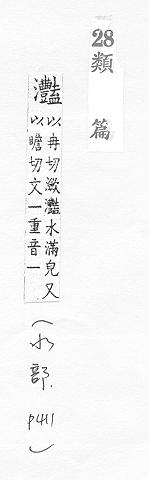 28
類篇
灩
以冉切瀲灩水滿皃又
以贍切文一重音一
（水部.
P411）